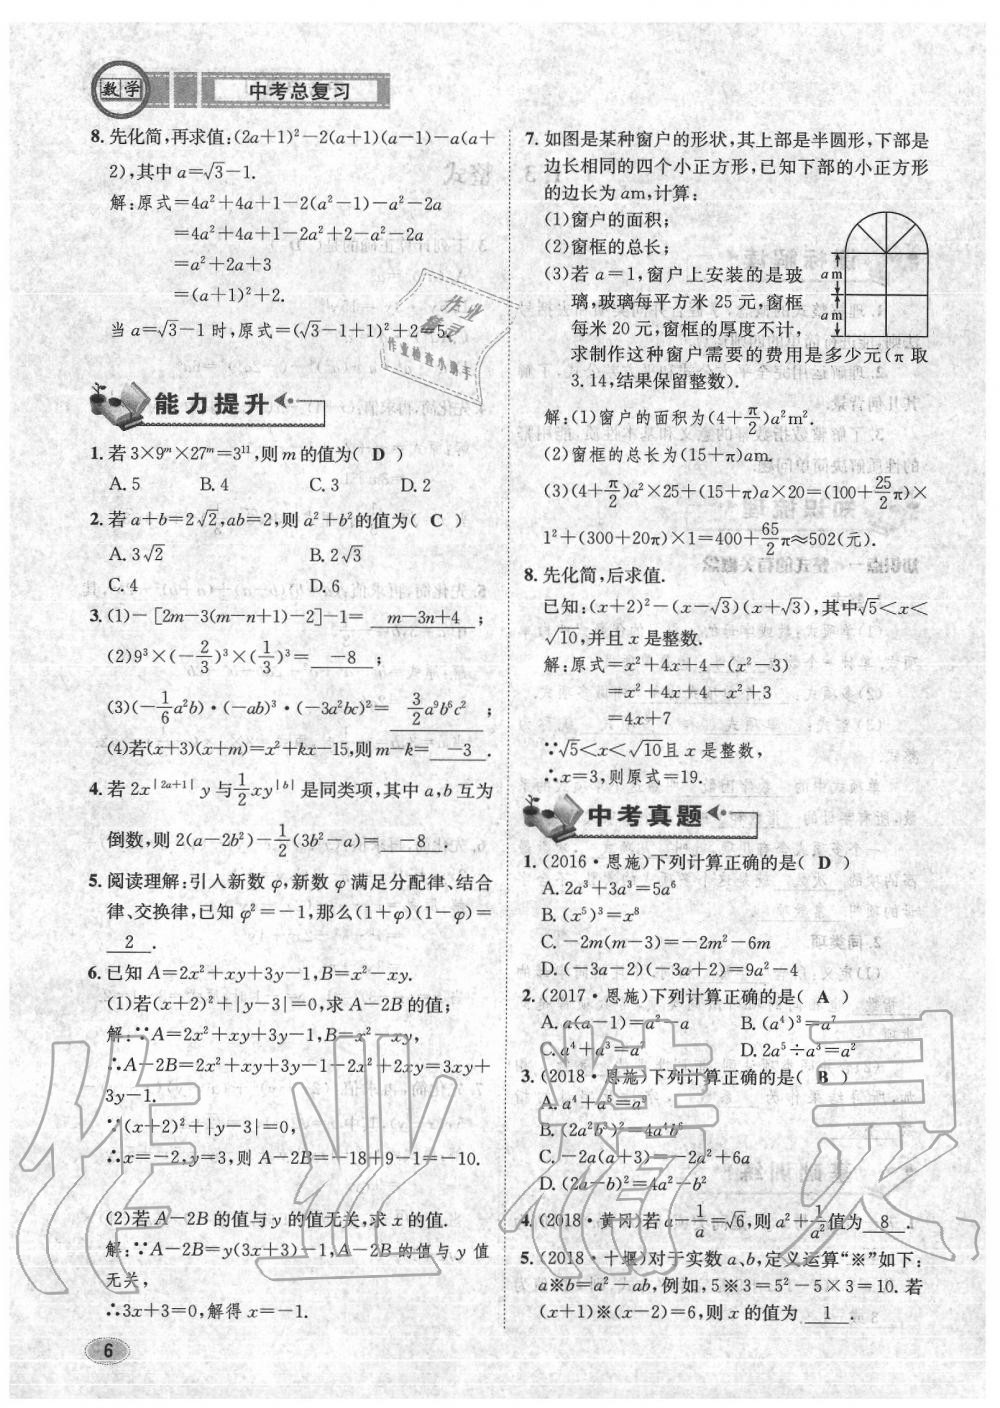 数学 中考总复习
8. 先化简,再求值:(2a+1)²-2(a+1)(a-1)-a(a+
2),其中 a=√3-1.
解:原式=4a²+4a+1-2(a²-1)-a²-2a
=4a²+4a+1-2a²+2-a²-2a
=a²+2a+3
=(a+1)²+2.
当 a=√3-1 时,原式=(√3-1+1)²+2=5.
作业
精灵
作业检查小助手
能力提升
1. 若 3×9ᵐ×27ᵐ=3¹¹,则 m 的值为( D )
A. 5 B. 4 C. 3 D. 2
2. 若 a+b=2√2,ab=2,则 a²+b²的值为( C )
A. 3√2 B. 2√3
C. 4 D. 6
3. (1)-[2m-3(m-n+1)-2]-1= m-3n+4 ;
(2)9³×(-2/3)³×(1/3)³= -8 ;
(3)(-1/6a²b)·(-ab)³·(-3a²bc)²= 3/2a⁹b⁶c² ;
(4)若(x+3)(x+m)=x²+kx-15,则 m-k= -3 .
4. 若 2x^|2a+1| y 与 1/2 xy^|b| 是同类项,其中 a,b 互为
倒数,则 2(a-2b²)-1/2(3b²-a)= -8 .
5. 阅读理解:引入新数 φ,新数 φ 满足分配律、结合
律、交换律,已知 φ²=-1,那么(1+φ)(1-φ)=
2 .
6. 已知 A=2x²+xy+3y-1,B=x²-xy.
(1)若(x+2)²+|y-3|=0,求 A-2B 的值;
解:∵A=2x²+xy+3y-1,B=x²-xy,
∴A-2B=2x²+xy+3y-1-2x²+2xy=3xy+
3y-1.
∵(x+2)²+|y-3|=0,
∴x=-2,y=3,则 A-2B=-18+9-1=-10.
(2)若 A-2B 的值与 y 的值无关,求 x 的值.
解:∵A-2B=y(3x+3)-1,A-2B 的值与 y 值
无关,
∴3x+3=0,解得 x=-1.
6
7. 如图是某种窗户的形状,其上部是半圆形,下部是
边长相同的四个小正方形,已知下部的小正方形
的边长为 am,计算:
(1)窗户的面积;
(2)窗框的总长;
(3)若 a=1,窗户上安装的是玻
璃,玻璃每平方米 25 元,窗框
每米 20 元,窗框的厚度不计,
求制作这种窗户需要的费用是多少元(π 取
3.14,结果保留整数).
a m
a m
解:(1)窗户的面积为(4+π/2)a²m².
(2)窗框的总长为(15+π)am.
(3)(4+π/2)a²×25+(15+π)a×20=(100+25/2π)×
1²+(300+20π)×1=400+65/2π≈502(元).
8. 先化简,后求值.
已知:(x+2)²-(x-√3)(x+√3),其中√5<x<
√10,并且 x 是整数.
解:原式=x²+4x+4-(x²-3)
=x²+4x+4-x²+3
=4x+7
∵√5<x<√10且 x 是整数,
∴x=3,则原式=19.
中考真题
1. (2016·恩施)下列计算正确的是( D )
A. 2a³+3a³=5a⁶
B. (x⁵)³=x⁸
C. -2m(m-3)=-2m²-6m
D. (-3a-2)(-3a+2)=9a²-4
2. (2017·恩施)下列计算正确的是( A )
A. a(a-1)=a²-a B. (a⁴)³=a⁷
C. a⁴+a³=a⁷ D. 2a⁵÷a³=a²
3. (2018·恩施)下列计算正确的是( B )
A. a⁴+a⁵=a⁹
B. (2a²b³)²=4a⁴b⁶
C. -2a(a+3)=-2a²+6a
D. (2a-b)²=4a²-b²
4. (2018·黄冈)若 a-1/a=√6,则 a²+1/a²值为 8 .
5. (2018·十堰)对于实数 a、b,定义运算“※”如下:
a※b=a²-ab,例如,5※3=5²-5×3=10. 若
(x+1)※(x-2)=6,则 x 的值为 1 .
作业精灵